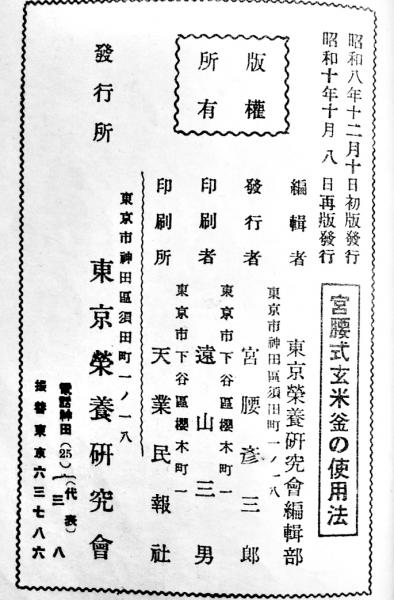 昭和八年十二月十日初版發行
昭和十年十月八日再版發行
宮腰式玄米釜の使用法
版權
所有
編輯者 東京榮養硏究會編輯部
東京市神田區須田町一ノ一八
發行者 宮腰彥三郎
東京市下谷區櫻木町一
印刷者 遠山三男
東京市下谷區櫻木町一
印刷所 天業民報社
東京市神田區須田町一ノ一八
發行所 東京榮養硏究會
電話神田(25)一三八(代表)
振替東京六三七八六